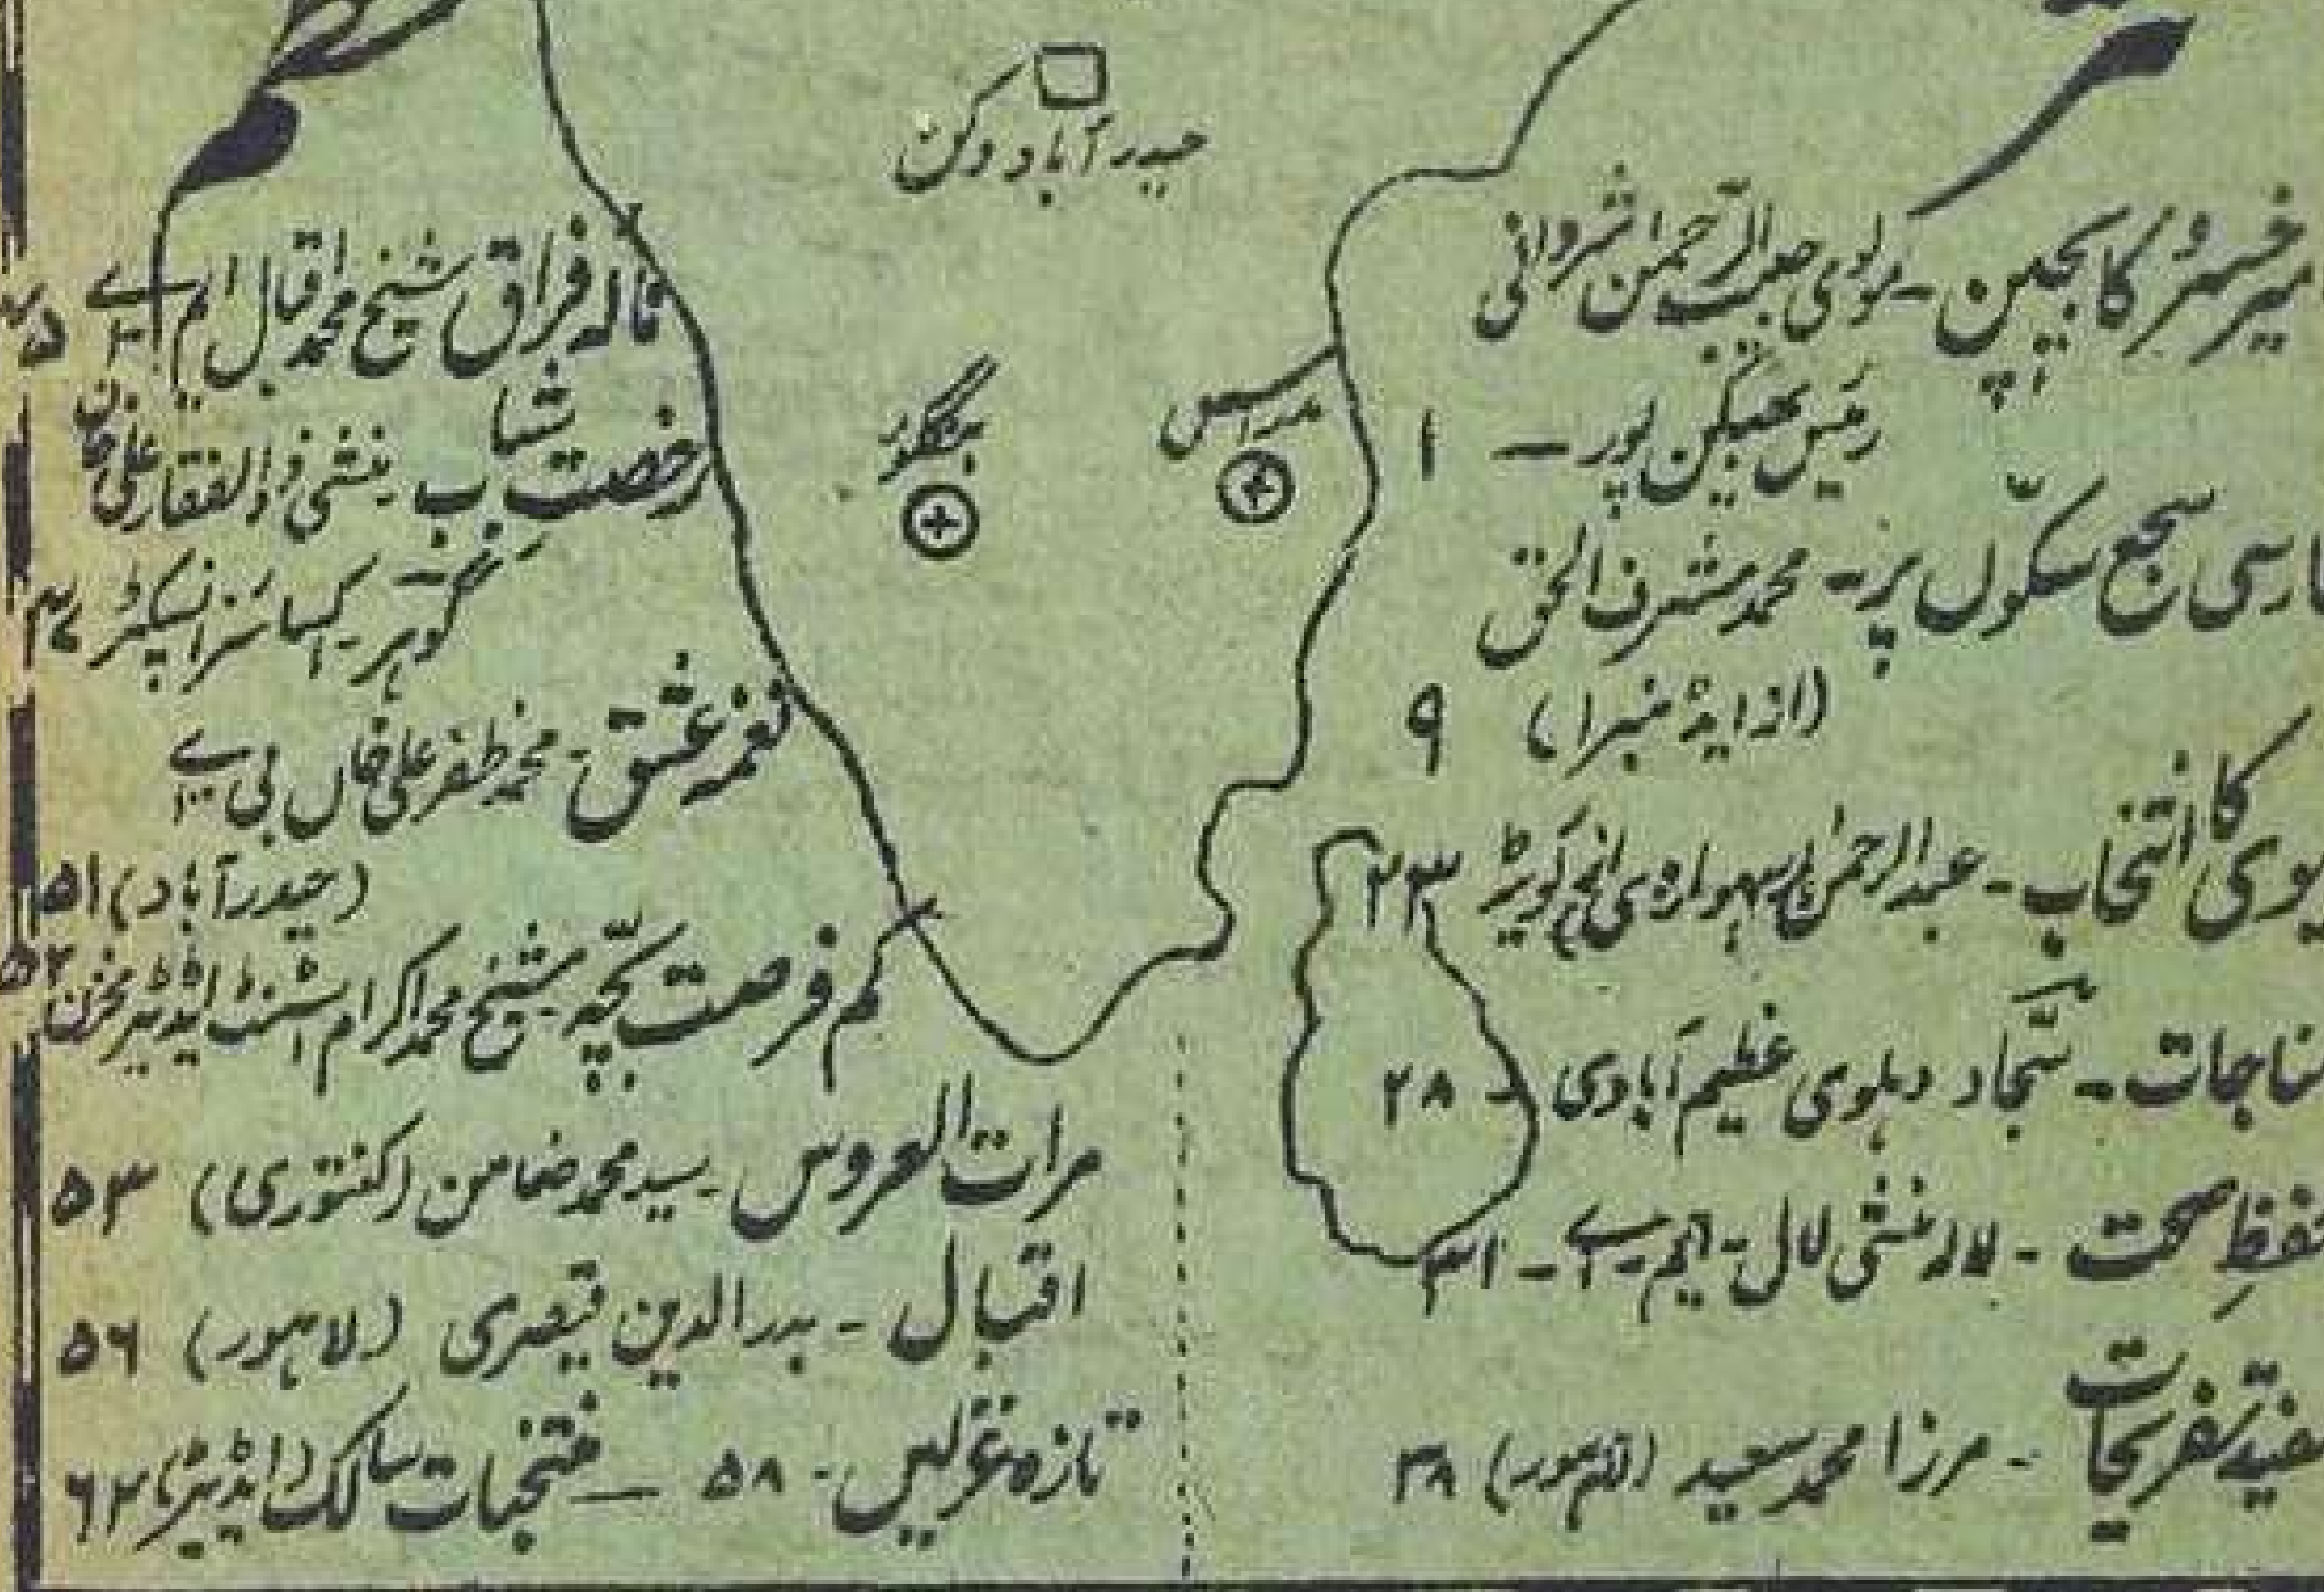 حیدرآباد دکن
بنگلور
مدراس
میر خسرو کا بچپن - مولوی حبیب الرحمن شروانی
رئیس بھیکن پور - ۱
سجع سکّوں پر - محمد شرف الحق
(از ایڈنبرا) ۹
کا انتخاب - عبدالرحمن سہواروی ۲۳
سجّاد دہلوی عظیم آبادی - ۲۸
صحت - لالہ منشی لال - ایم - اے - ۳۱
تفریحات - مرزا محمد سعید (لاہور) ۳۸
نالہ فراق شیخ محمد اقبال ایم اے ۴۵
رخصت شباب - منشی ذوالفقار علی خان
گوہر ایکسائز انسپکٹر ۴۷
نغمہ عشق - محمد ظفر علی خاں بی اے
(حیدرآباد) ۵۱
کم فرصت بچّہ - شیخ محمد اکرام اسسٹنٹ ایڈیٹر مخزن ۵۲
مرات العروس - سید محمد ضامن (کنتوری) ۵۳
اقبال - بدرالدین قیصری (لاہور) ۵۶
تازہ غزلیں - ۵۸ — منتخبات سالک (ایڈیٹر) ۶۲